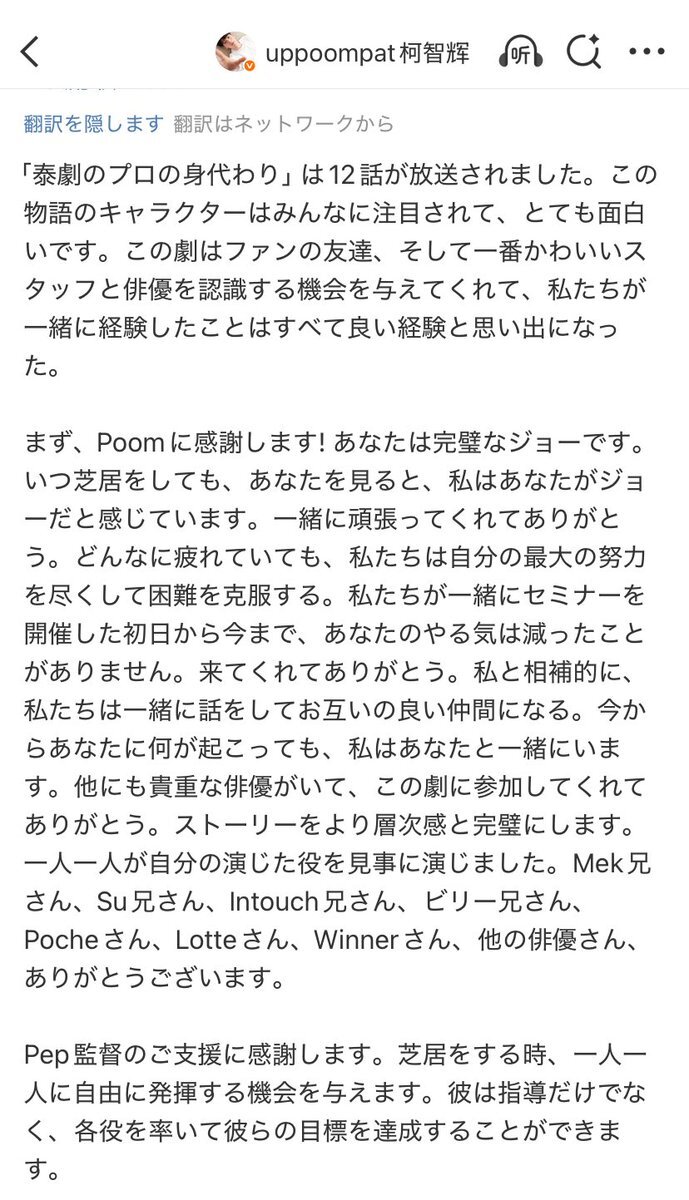 uppoompat柯智辉
听
翻訳を隠します 翻訳はネットワークから
「泰劇のプロの身代わり」は12話が放送されました。この
物語のキャラクターはみんなに注目されて、とても面白
いです。この劇はファンの友達、そして一番かわいいス
タッフと俳優を認識する機会を与えてくれて、私たちが
一緒に経験したことはすべて良い経験と思い出になっ
た。
まず、Poomに感謝します! あなたは完璧なジョーです。
いつ芝居をしても、あなたを見ると、私はあなたがジョ
ーだと感じています。一緒に頑張ってくれてありがと
う。どんなに疲れていても、私たちは自分の最大の努力
を尽くして困難を克服する。私たちが一緒にセミナーを
開催した初日から今まで、あなたのやる気は減ったこと
がありません。来てくれてありがとう。私と相補的に、
私たちは一緒に話をしてお互いの良い仲間になる。今か
らあなたに何が起こっても、私はあなたと一緒にいま
す。他にも貴重な俳優がいて、この劇に参加してくれて
ありがとう。ストーリーをより層次感と完璧にします。
一人一人が自分の演じた役を見事に演じました。Mek兄
さん、Su兄さん、Intouch兄さん、ビリー兄さん、
Pocheさん、Lotteさん、Winnerさん、他の俳優さん、
ありがとうございます。
Pep監督のご支援に感謝します。芝居をする時、一人一
人に自由に発揮する機会を与えます。彼は指導だけでな
く、各役を率いて彼らの目標を達成することができま
す。